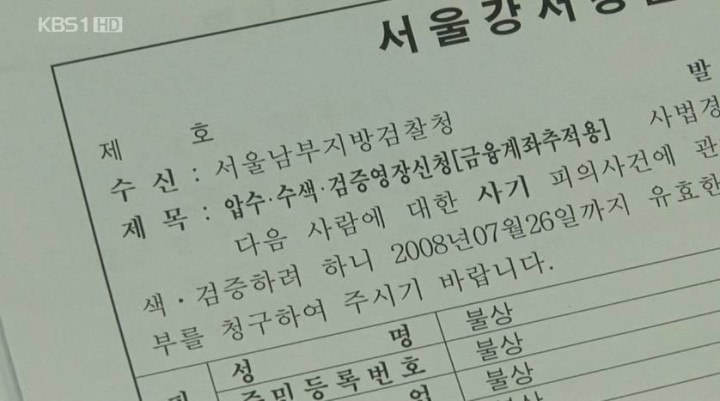 KBS1 HD
서울강서경찰
발
제 호
수 신 : 서울남부지방검찰청 사법경
제 목 : 압수·수색·검증영장신청[금융계좌추적용]
다음 사람에 대한 사기 피의사건에 관
색·검증하려 하니 2008년07월26일까지 유효한
부를 청구하여 주시기 바랍니다.
성 명 불상
주민등록번호 불상
업 불상
불상